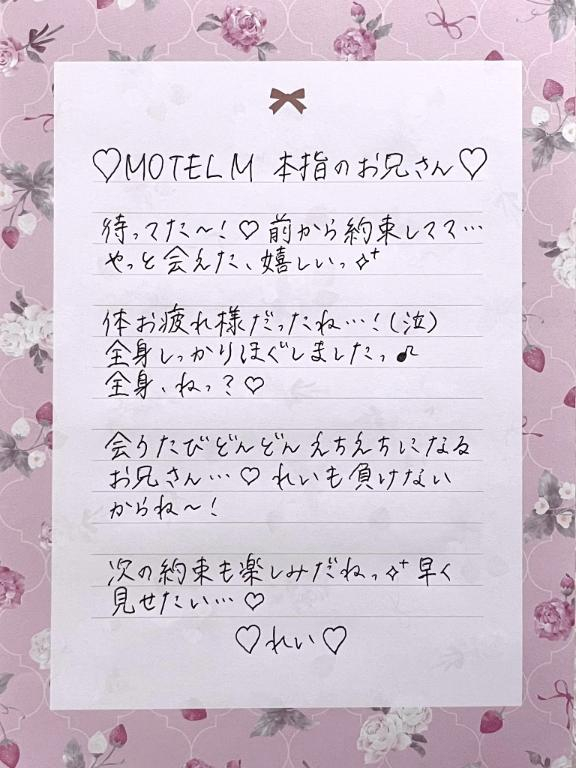 ♡MOTEL M 本指のお兄さん♡
待ってた〜！♡前から約束してて…
やっと会えた、嬉しいっ✧⁺
体お疲れ様だったね…！(泣)
全身しっかりほぐしましたっ♪
全身、ねっ？♡
会うたびどんどんえちえちになる
お兄さん…♡れいも負けない
からね〜！
次の約束も楽しみだねっ✧⁺早く
見せたい…♡
♡れい♡